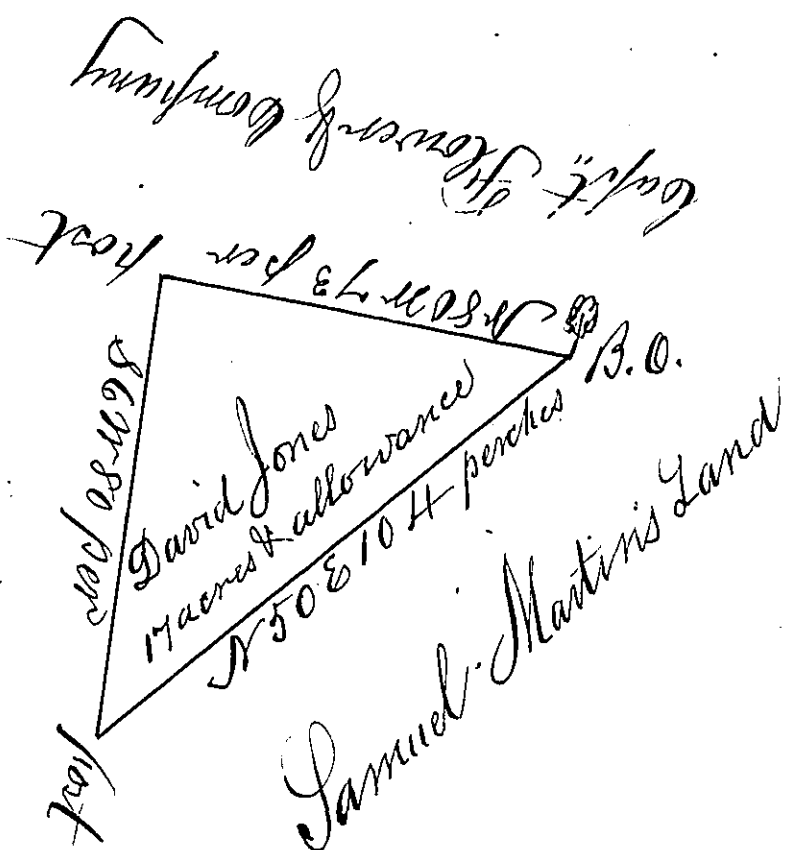 Capt,, Flower & Company
post
N 80 W 73 per
B.O.
S 6 W 80 per
David Jones
17 acres & allowance
N 50 E 104 perches
Samuel Martin's Land
post